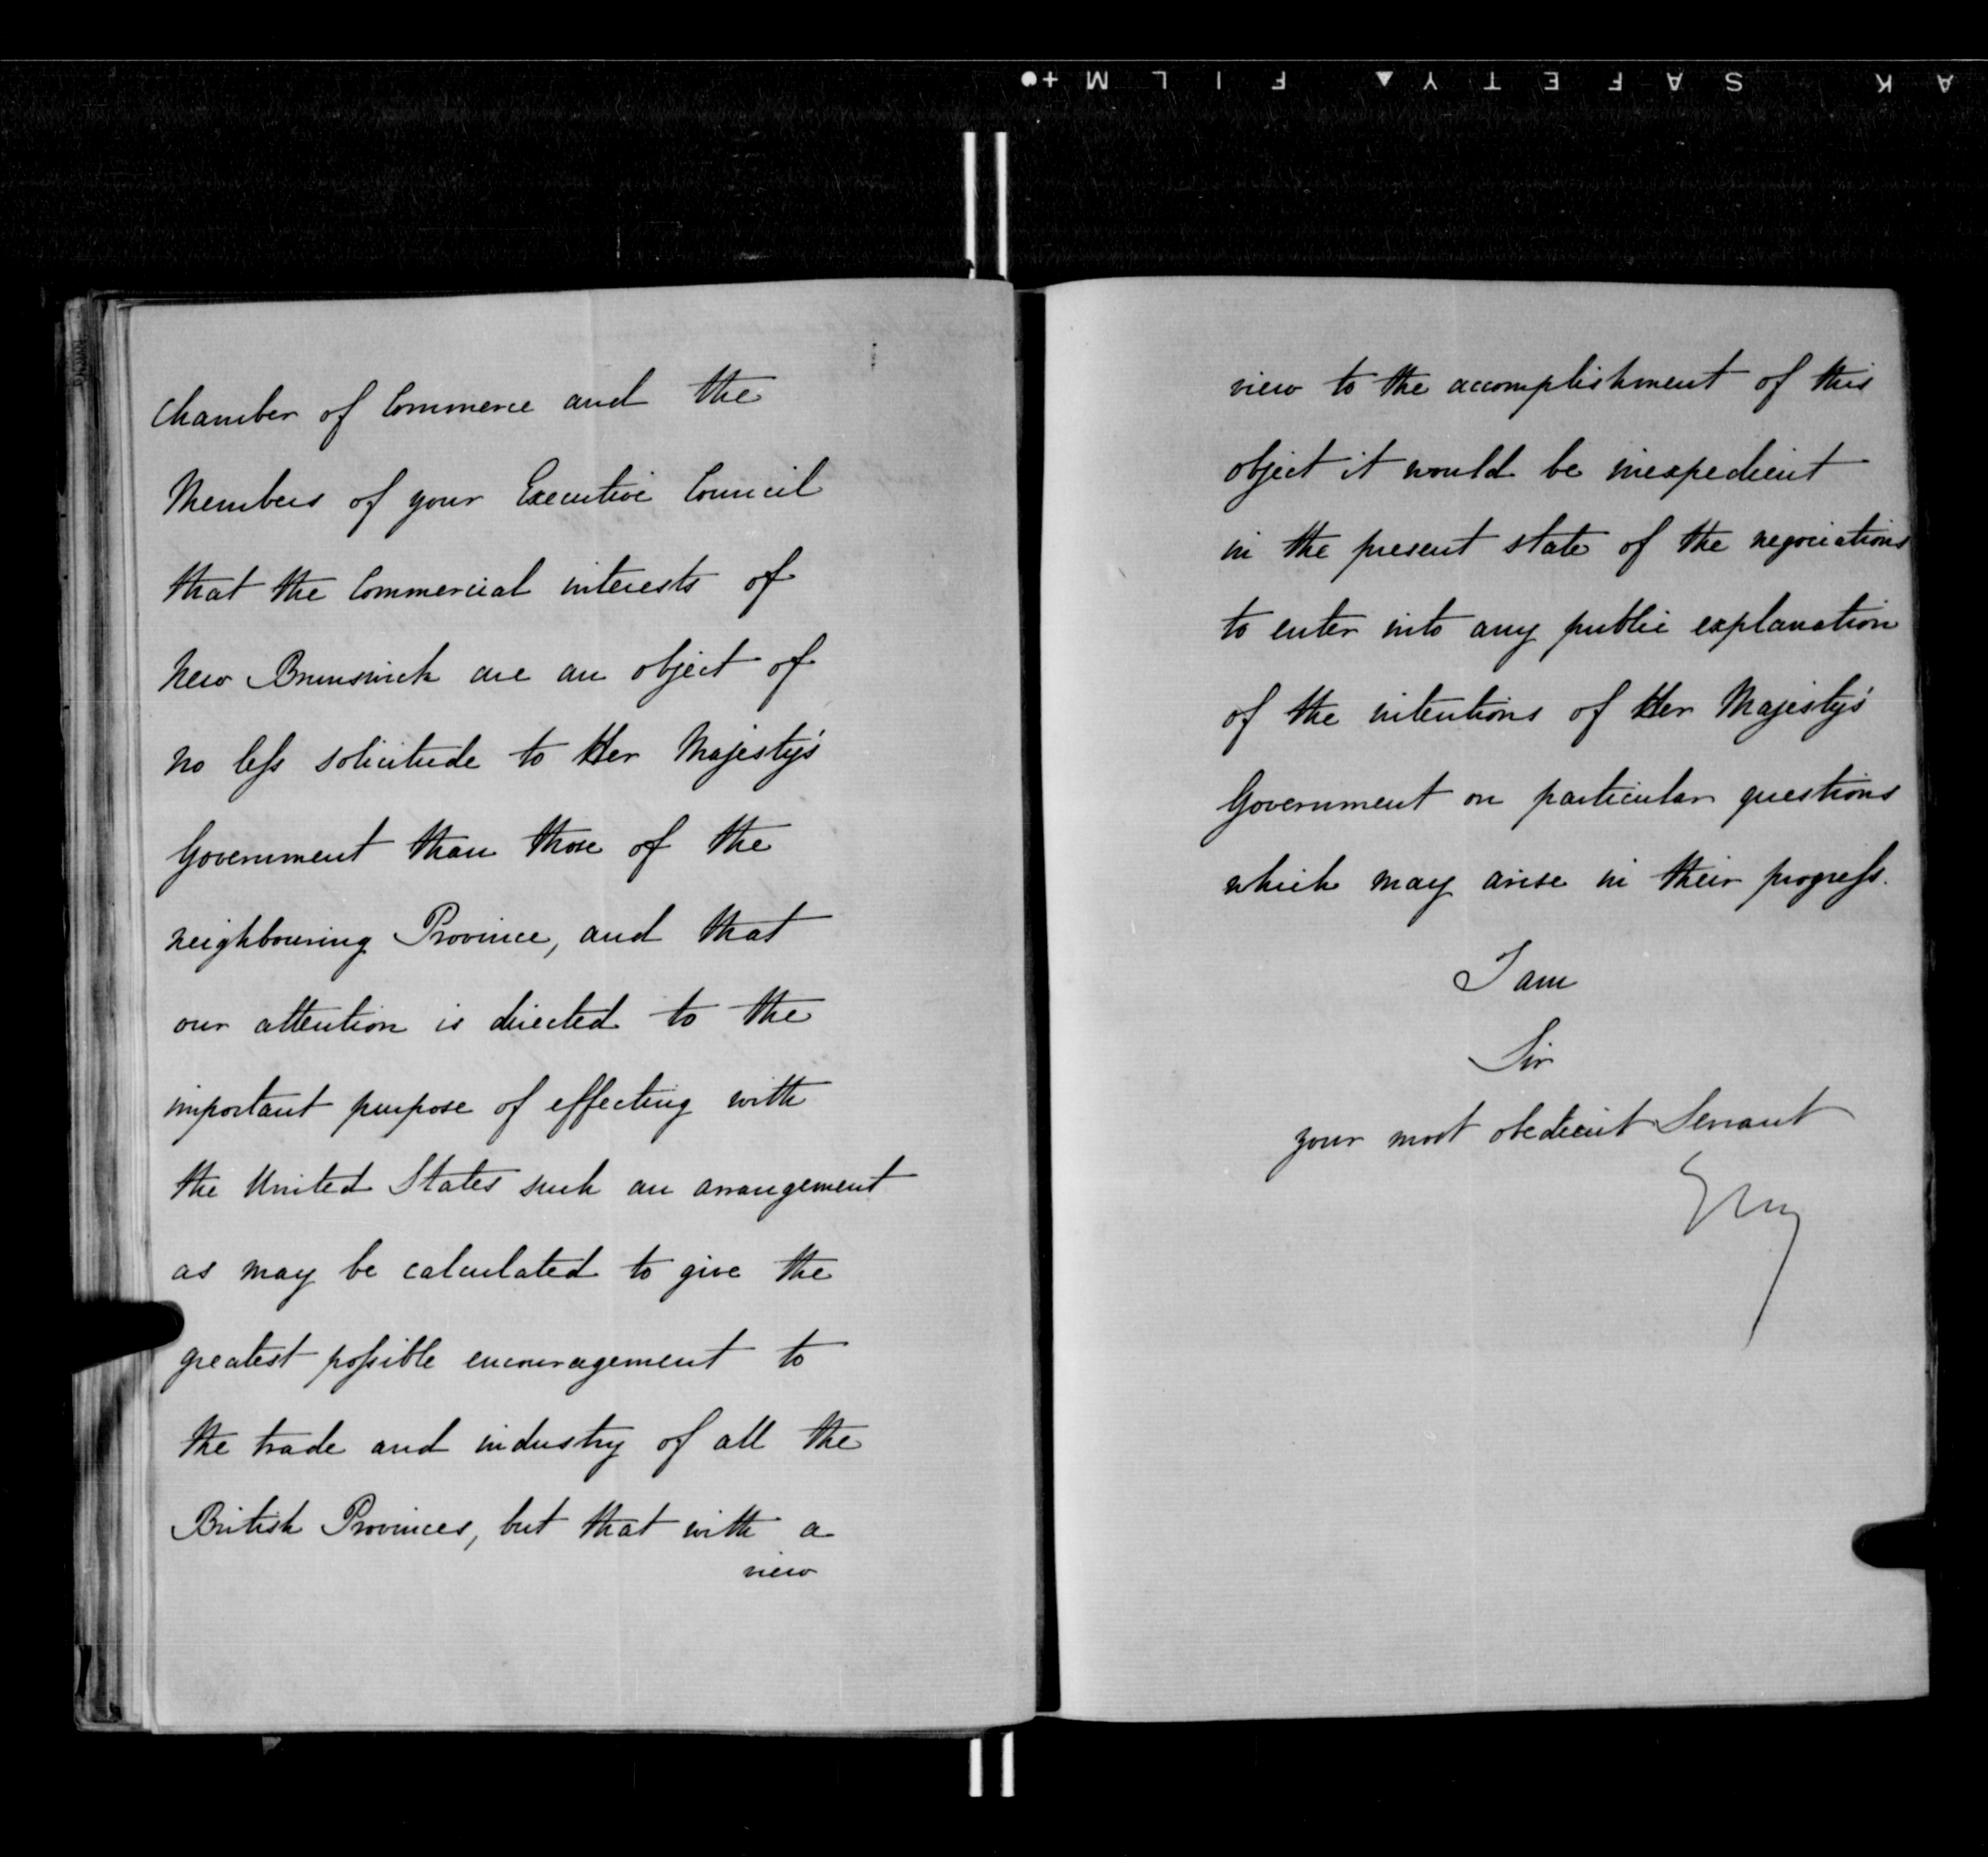 A K SAFETY▲ FILM +●
Chamber of Commerce and the
Members of your Executive Council
that the Commercial interests of
New Brunswick are an object of
no less solicitude to Her Majesty's
Government than those of the
neighbouring Province, and that
our attention is directed to the
important purpose of effecting with
the United States such an arrangement
as may be calculated to give the
greatest possible encouragement to
the trade and industry of all the
British Provinces, but that with a
view
view to the accomplishment of this
object it would be inexpedient
in the present state of the negociations
to enter into any public explanation
of the intentions of Her Majesty's
Government on particular questions
which may arise in their progress.
I am
Sir
your most obedient Servant
Grey